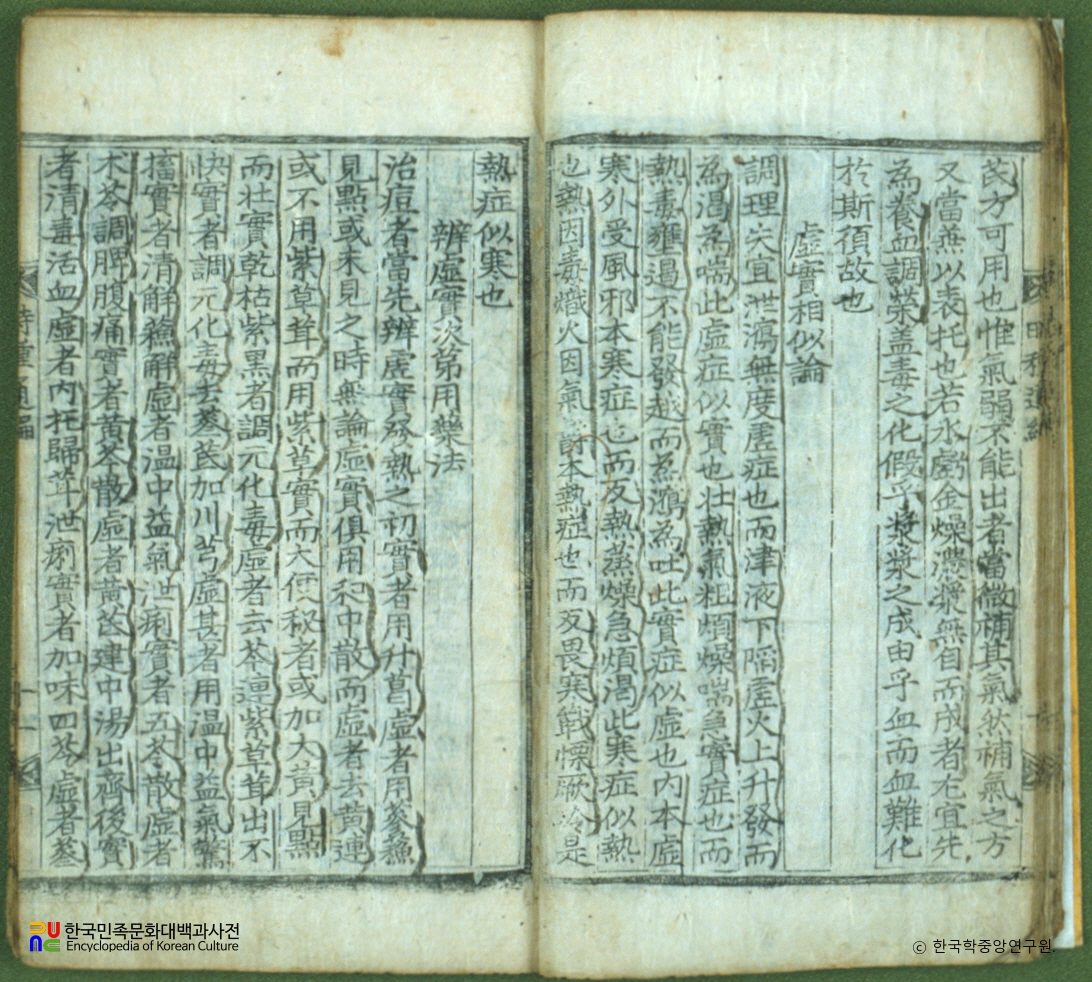 芪方可用也惟氣弱不能出者當微補其氣然補氣之方
又當兼以表托也若水虧金燥濃漿無自而成者尤宜先
為養血調榮盖毒之化假乎漿漿之成由乎血而血難化
於斯須故也
虛實相似論
調理失宜泄瀉無度虛症也而津液下陷虛火上升發而
為渴為喘此虛症似實也壯熱氣粗煩燥喘急實症也而
熱毒壅遏不能發越而為瀉為吐此實症似虛也內本虛
寒外受風邪本寒症也而反熱蒸燥急煩渴此寒症似熱
也熱因毒熾火因氣鬱本熱症也而反畏寒戰慄厥冷是
熱症似寒也
辨虛實次第用藥法
治痘者當先辨虛實發熱之初實者用升葛虛者用參蘇
見點或未見之時無論虛實俱用和中散而虛者去黄連
或不用紫草茸而用紫草實而大便秘者或加大黄見點
而壮實乾枯紫黑者調元化毒虛者去芩連紫草茸出不
快實者調元化毒去蔘芪加川芎虛甚者用温中益氣驚
搐實者清解蘓解虛者温中益氣泄痢實者五苓散虛者
朮苓調脾腹痛實者黄芩散虛者黄芪建中湯出齊後實
者清毒活血虛者內托歸茸泄痢實者加味四苓虛者蔘
한국민족문화대백과사전
Encyclopedia of Korean Culture
ⓒ 한국학중앙연구원.